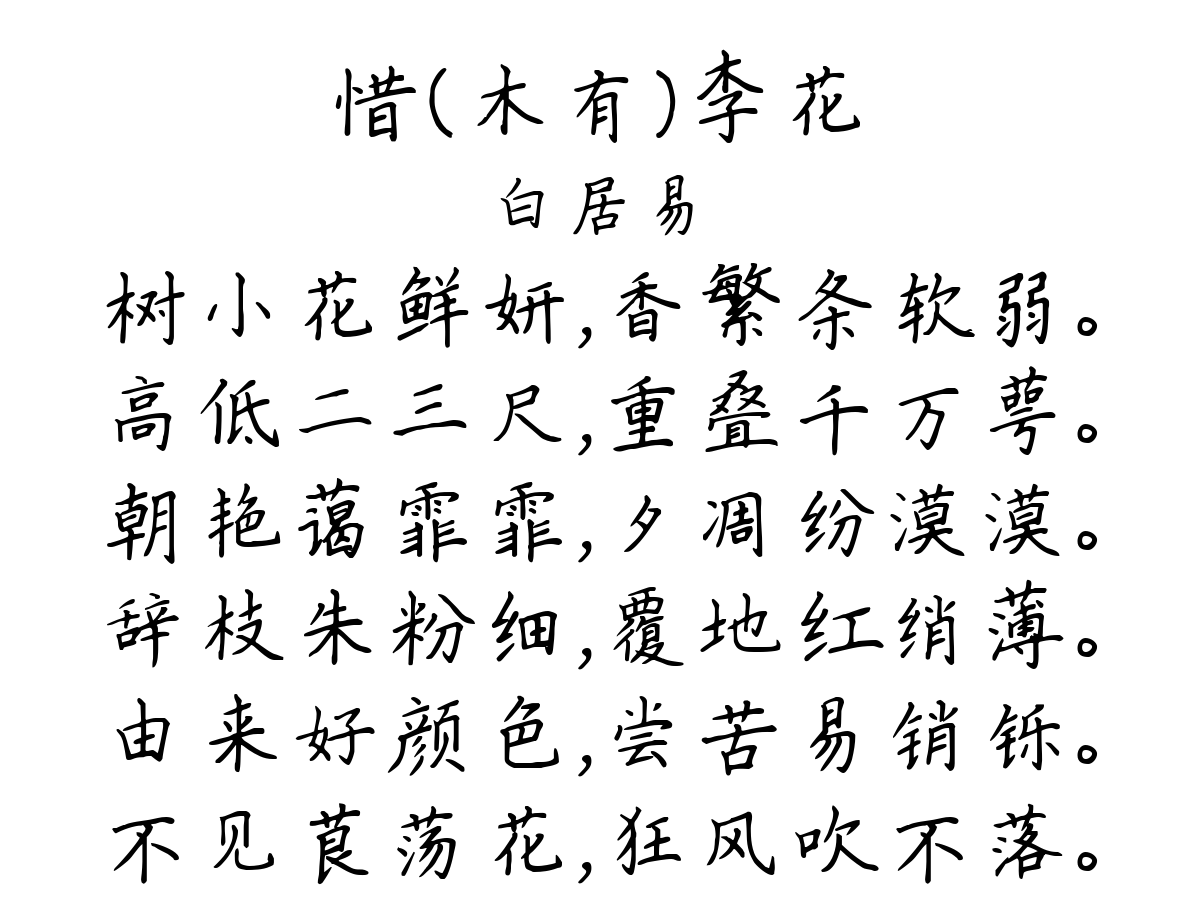 惜(木有)李花
白居易
树小花鲜妍,香繁条软弱。
高低二三尺,重叠千万萼。
朝艳蔼霏霏,夕凋纷漠漠。
辞枝朱粉细,覆地红绡薄。
由来好颜色,尝苦易销铄。
不见莨荡花,狂风吹不落。